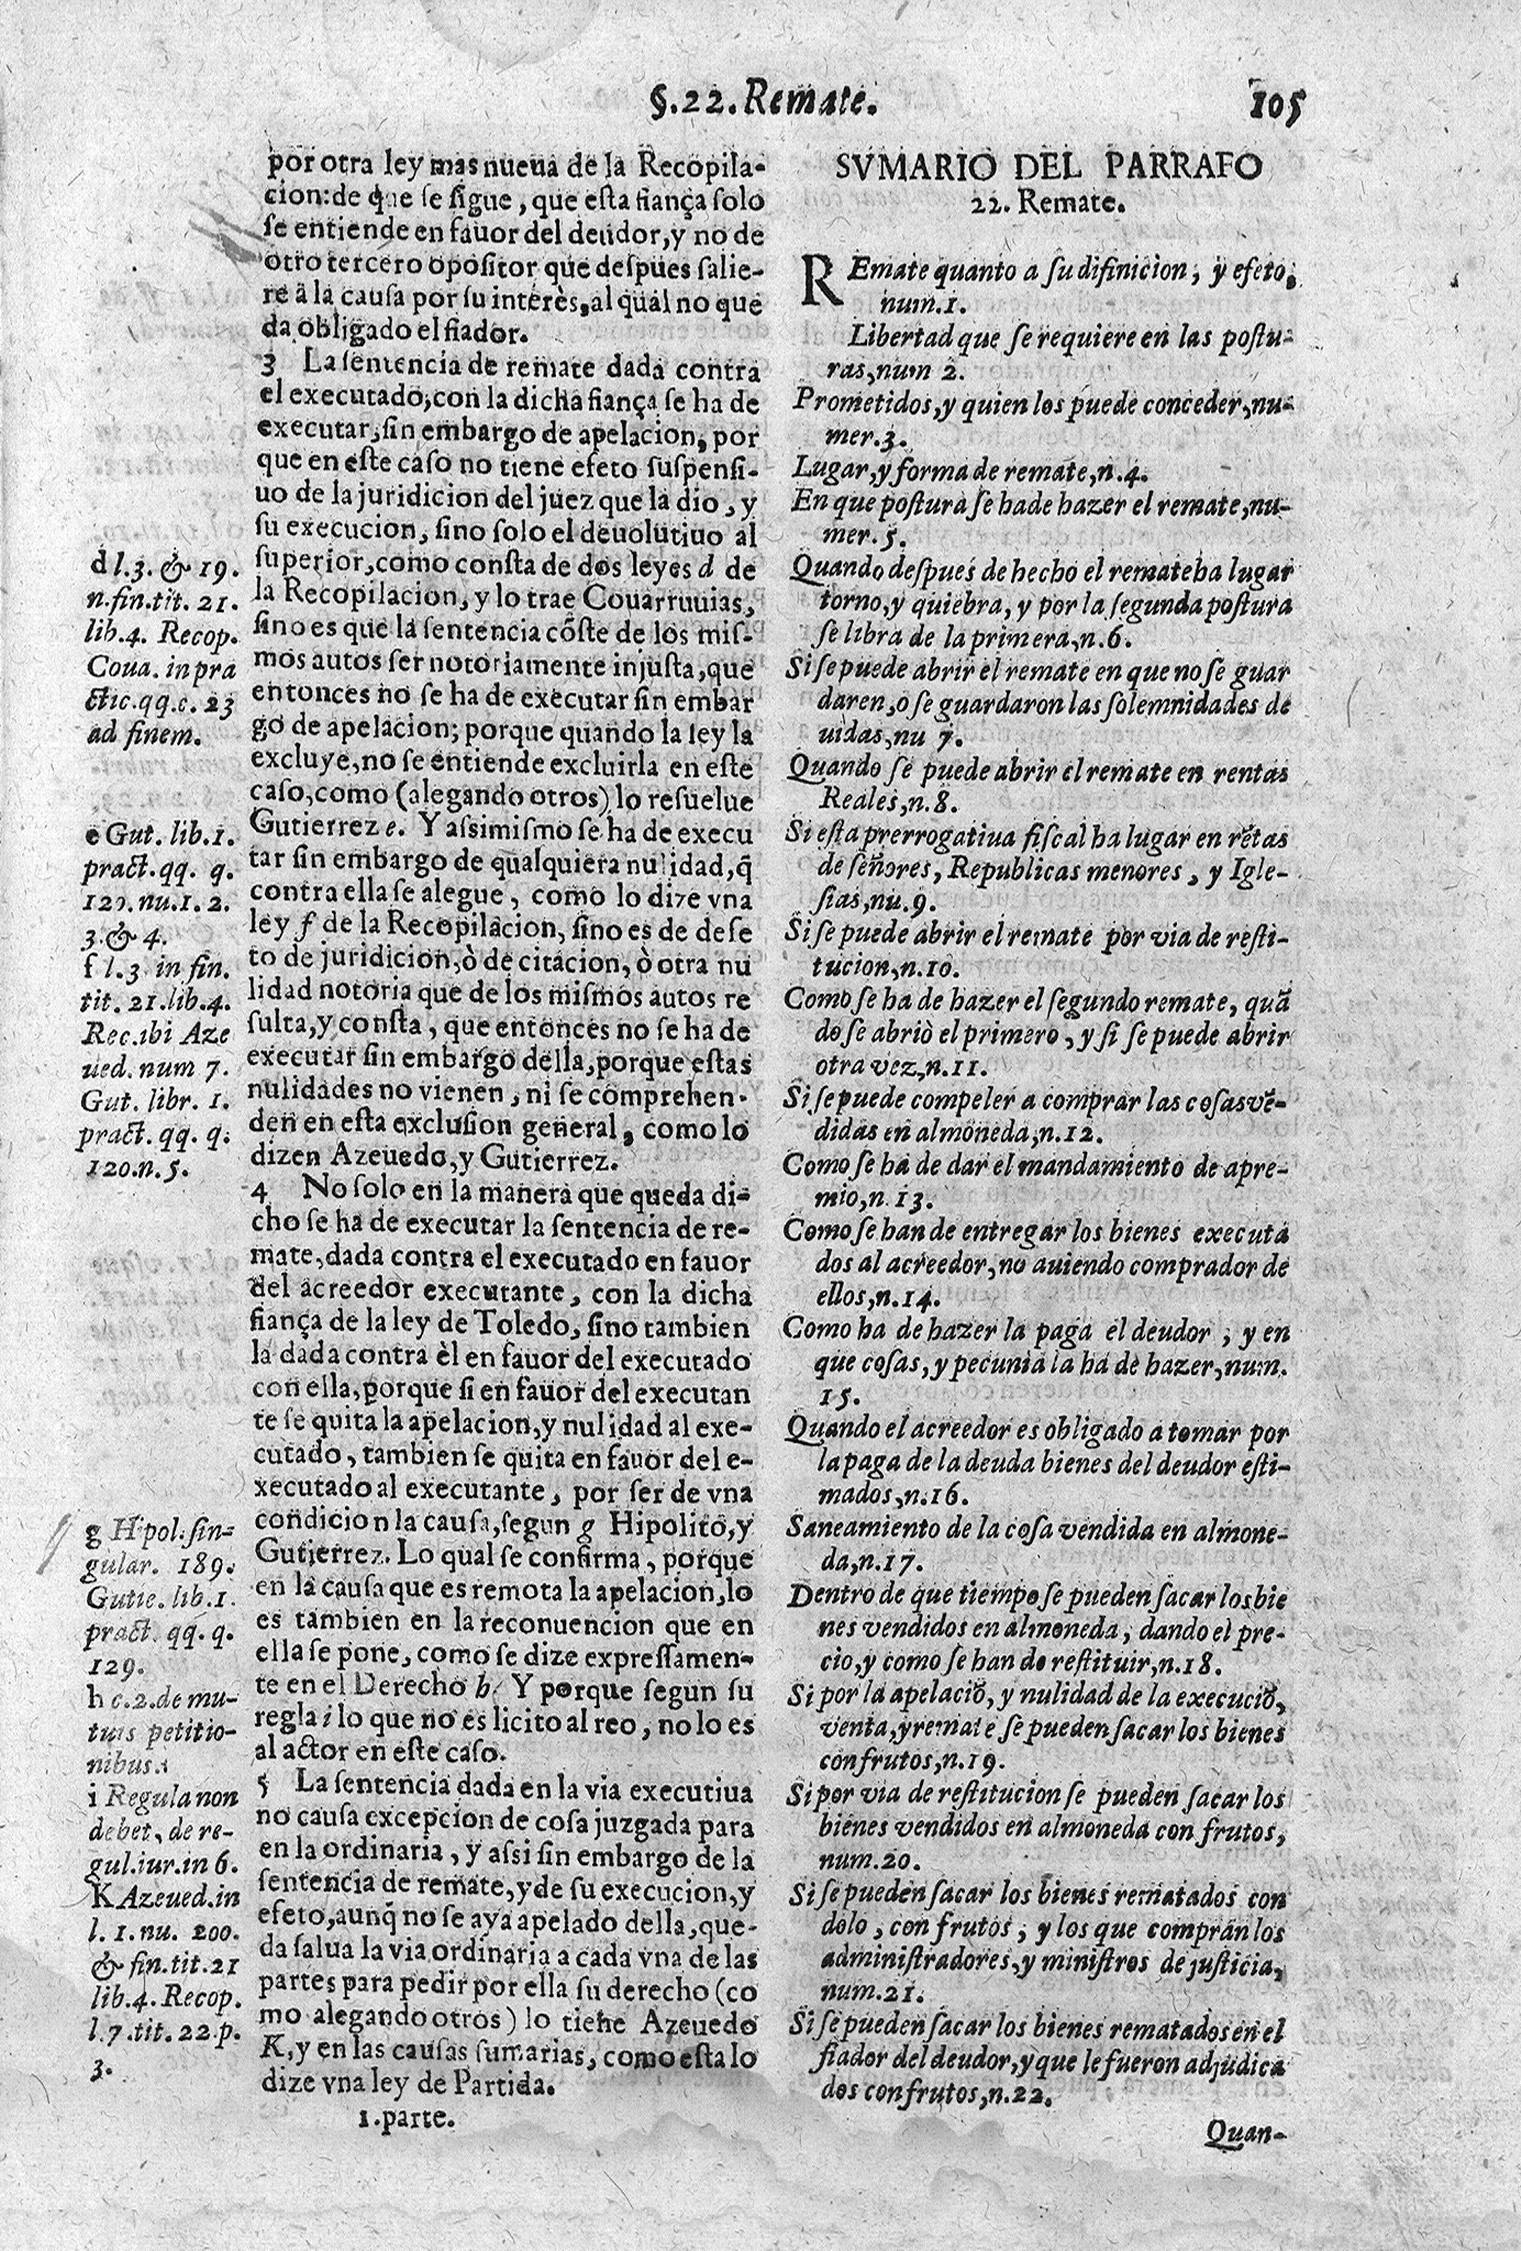 §.22.Remate.
105
por otra ley mas nueua de la Recopila-
cion:de que se sigue, que esta fiança solo
se entiende en fauor del deudor, y no de
otro tercero opositor que despues salie-
re à la causa por su interès, al qual no que
da obligado el fiador.
3 La sentencia de remate dada contra
el executado, con la dicha fiança se ha de
executar, sin embargo de apelacion, por
que en este caso no tiene efeto suspensi-
uo de la juridicion del juez que la dio, y
su execucion, sino solo el deuolutiuo al
superior, como consta de dos leyes d de
la Recopilacion, y lo trae Couarruuias,
sino es que la sentencia cõste de los mis-
mos autos ser notoriamente injusta, que
entonces no se ha de executar sin embar
go de apelacion; porque quando la ley la
excluye, no se entiende excluirla en este
caso, como (alegando otros) lo resuelue
Gutierrez e. Y assimismo se ha de execu
tar sin embargo de qualquiera nulidad, q̃
contra ella se alegue, como lo dize vna
ley f de la Recopilacion, sino es de defe
to de juridicion, ò de citacion, ò otra nu
lidad notoria que de los mismos autos re
sulta, y consta, que entonces no se ha de
executar sin embargo della, porque estas
nulidades no vienen, ni se comprehen-
den en esta exclusion general, como lo
dizen Azeuedo, y Gutierrez.
4 No solo en la manera que queda di-
cho se ha de executar la sentencia de re-
mate, dada contra el executado en fauor
del acreedor executante, con la dicha
fiança de la ley de Toledo, sino tambien
la dada contra èl en fauor del executado
con ella, porque si en fauor del executan
te se quita la apelacion, y nulidad al exe-
cutado, tambien se quita en fauor del e-
xecutado al executante, por ser de vna
condicion la causa, segun g Hipolito, y
Gutierrez. Lo qual se confirma, porque
en la causa que es remota la apelacion, lo
es tambien en la reconuencion que en
ella se pone, como se dize expressamen-
te en el Derecho h. Y porque segun su
regla i lo que no es licito al reo, no lo es
al actor en este caso.
5 La sentencia dada en la via executiua
no causa excepcion de cosa juzgada para
en la ordinaria, y assi sin embargo de la
sentencia de remate, y de su execucion, y
efeto, aunq̃ no se aya apelado della, que-
da salua la via ordinaria a cada vna de las
partes para pedir por ella su derecho (co
mo alegando otros) lo tiene Azeuedo
K, y en las causas sumarias, como esta lo
dize vna ley de Partida.
1.parte.
d l.3. & 19.
n.fin.tit. 21.
lib.4. Recop.
Coua. in pra
ctic.qq.c. 23
ad finem.
e Gut. lib.1.
pract.qq. q.
120.nu.1.2.
3.& 4.
f l.3 in fin.
tit. 21.lib.4.
Rec.ibi Aze
ued. num 7.
Gut. libr. 1.
pract. qq. q.
120.n.5.
g Hipol.sin-
gular. 189.
Gutie. lib.1.
pract. qq. q.
129.
h c.2.de mu-
tuis petitio-
nibus.
i Regula non
debet, de re-
gul.iur.in 6.
K Azeued.in
l. 1. nu. 200.
& fin.tit.21
lib.4. Recop.
l.7.tit.22.p.
3.
SVMARIO DEL PARRAFO
22. Remate.
REmate quanto a su difinicion, y efeto,
num.1.
Libertad que se requiere en las postu-
ras, num 2.
Prometidos, y quien los puede conceder, nu-
mer.3.
Lugar, y forma de remate, n.4.
En que postura se ha de hazer el remate, nu-
mer. 5.
Quando despues de hecho el remate ha lugar
torno, y quiebra, y por la segunda postura
se libra de la primera, n.6.
Si se puede abrir el remate en que no se guar
daren, o se guardaron las solemnidades de
uidas, nu 7.
Quando se puede abrir el remate en rentas
Reales, n.8.
Si esta prerrogatiua fiscal ha lugar en rẽtas
de señores, Republicas menores, y Igle-
sias, nu.9.
Si se puede abrir el remate por via de resti-
tucion, n.10.
Como se ha de hazer el segundo remate, quã
do se abriò el primero, y si se puede abrir
otra vez, n.11.
Si se puede compeler a comprar las cosas vẽ-
didas en almoneda, n.12.
Como se ha de dar el mandamiento de apre-
mio, n.13.
Como se han de entregar los bienes executa
dos al acreedor, no auiendo comprador de
ellos, n.14.
Como ha de hazer la paga el deudor, y en
que cosas, y pecunia la ha de hazer, num.
15.
Quando el acreedor es obligado a tomar por
la paga de la deuda bienes del deudor esti-
mados, n.16.
Saneamiento de la cosa vendida en almone-
da, n.17.
Dentro de que tiempo se pueden sacar los bie
nes vendidos en almoneda, dando el pre-
cio, y como se han de restituir, n.18.
Si por la apelaciõ, y nulidad de la execuciõ,
venta, y remate se pueden sacar los bienes
con frutos, n.19.
Si por via de restitucion se pueden sacar los
bienes vendidos en almoneda con frutos,
num.20.
Si se pueden sacar los bienes rematados con
dolo, con frutos, y los que compran los
administradores, y ministros de justicia,
num.21.
Si se pueden sacar los bienes rematados en el
fiador del deudor, y que le fueron adjudica
dos con frutos, n.22.
Quan-